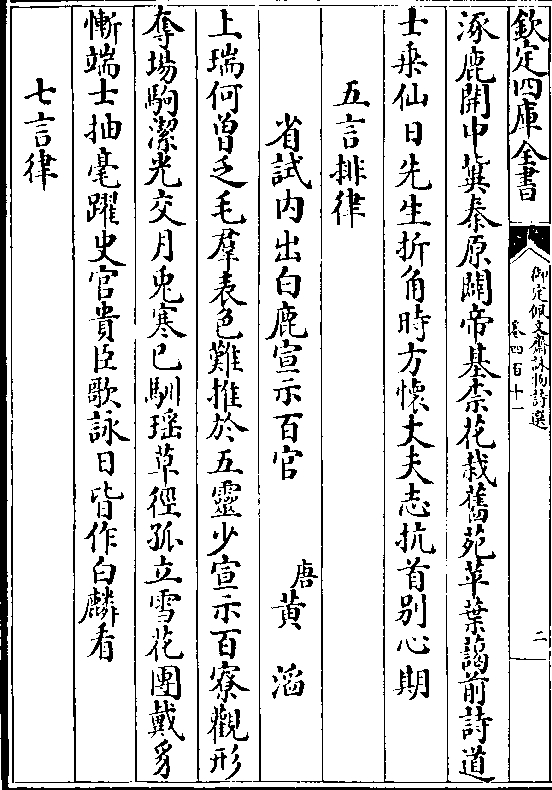 欽定四庫全書
御定佩文齋詠物詩選
卷四百十一
二
涿鹿開中冀秦原闢帝基柰花栽舊苑苹葉藹前詩道
士乘仙日先生折角時方懷丈夫志抗首別心期
五言排律
省試内出白鹿宣示百官
唐黄滔
上瑞何曽乏毛羣表色難推於五靈少宣示百寮觀形
奪場駒潔光交月兎寒已馴瑶草徑孤立雪花團戴豸
慚端士抽毫躍史官貴臣歌詠日皆作白麟看
七言律